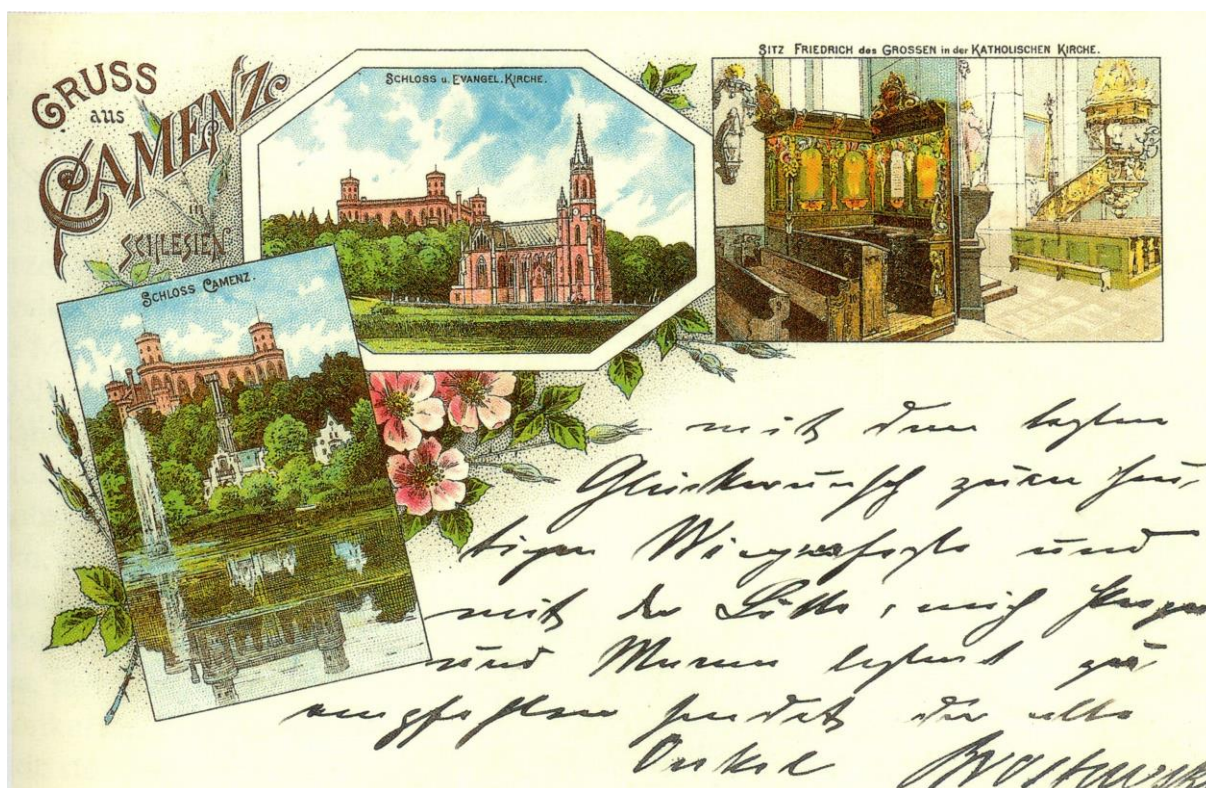 GRUSS
aus
CAMENZ
in
SCHLESIEN
SCHLOSS u. EVANGEL. KIRCHE.
SITZ FRIEDRICH des GROSSEN in der KATHOLISCHEN KIRCHE.
SCHLOSS CAMENZ.
mit dem besten
Glückwunsch zum heu-
tigen Wiegenfeste und
mit der Bitte, mich
und Mama bestens zu
empfehlen sendet der alte
Onkel